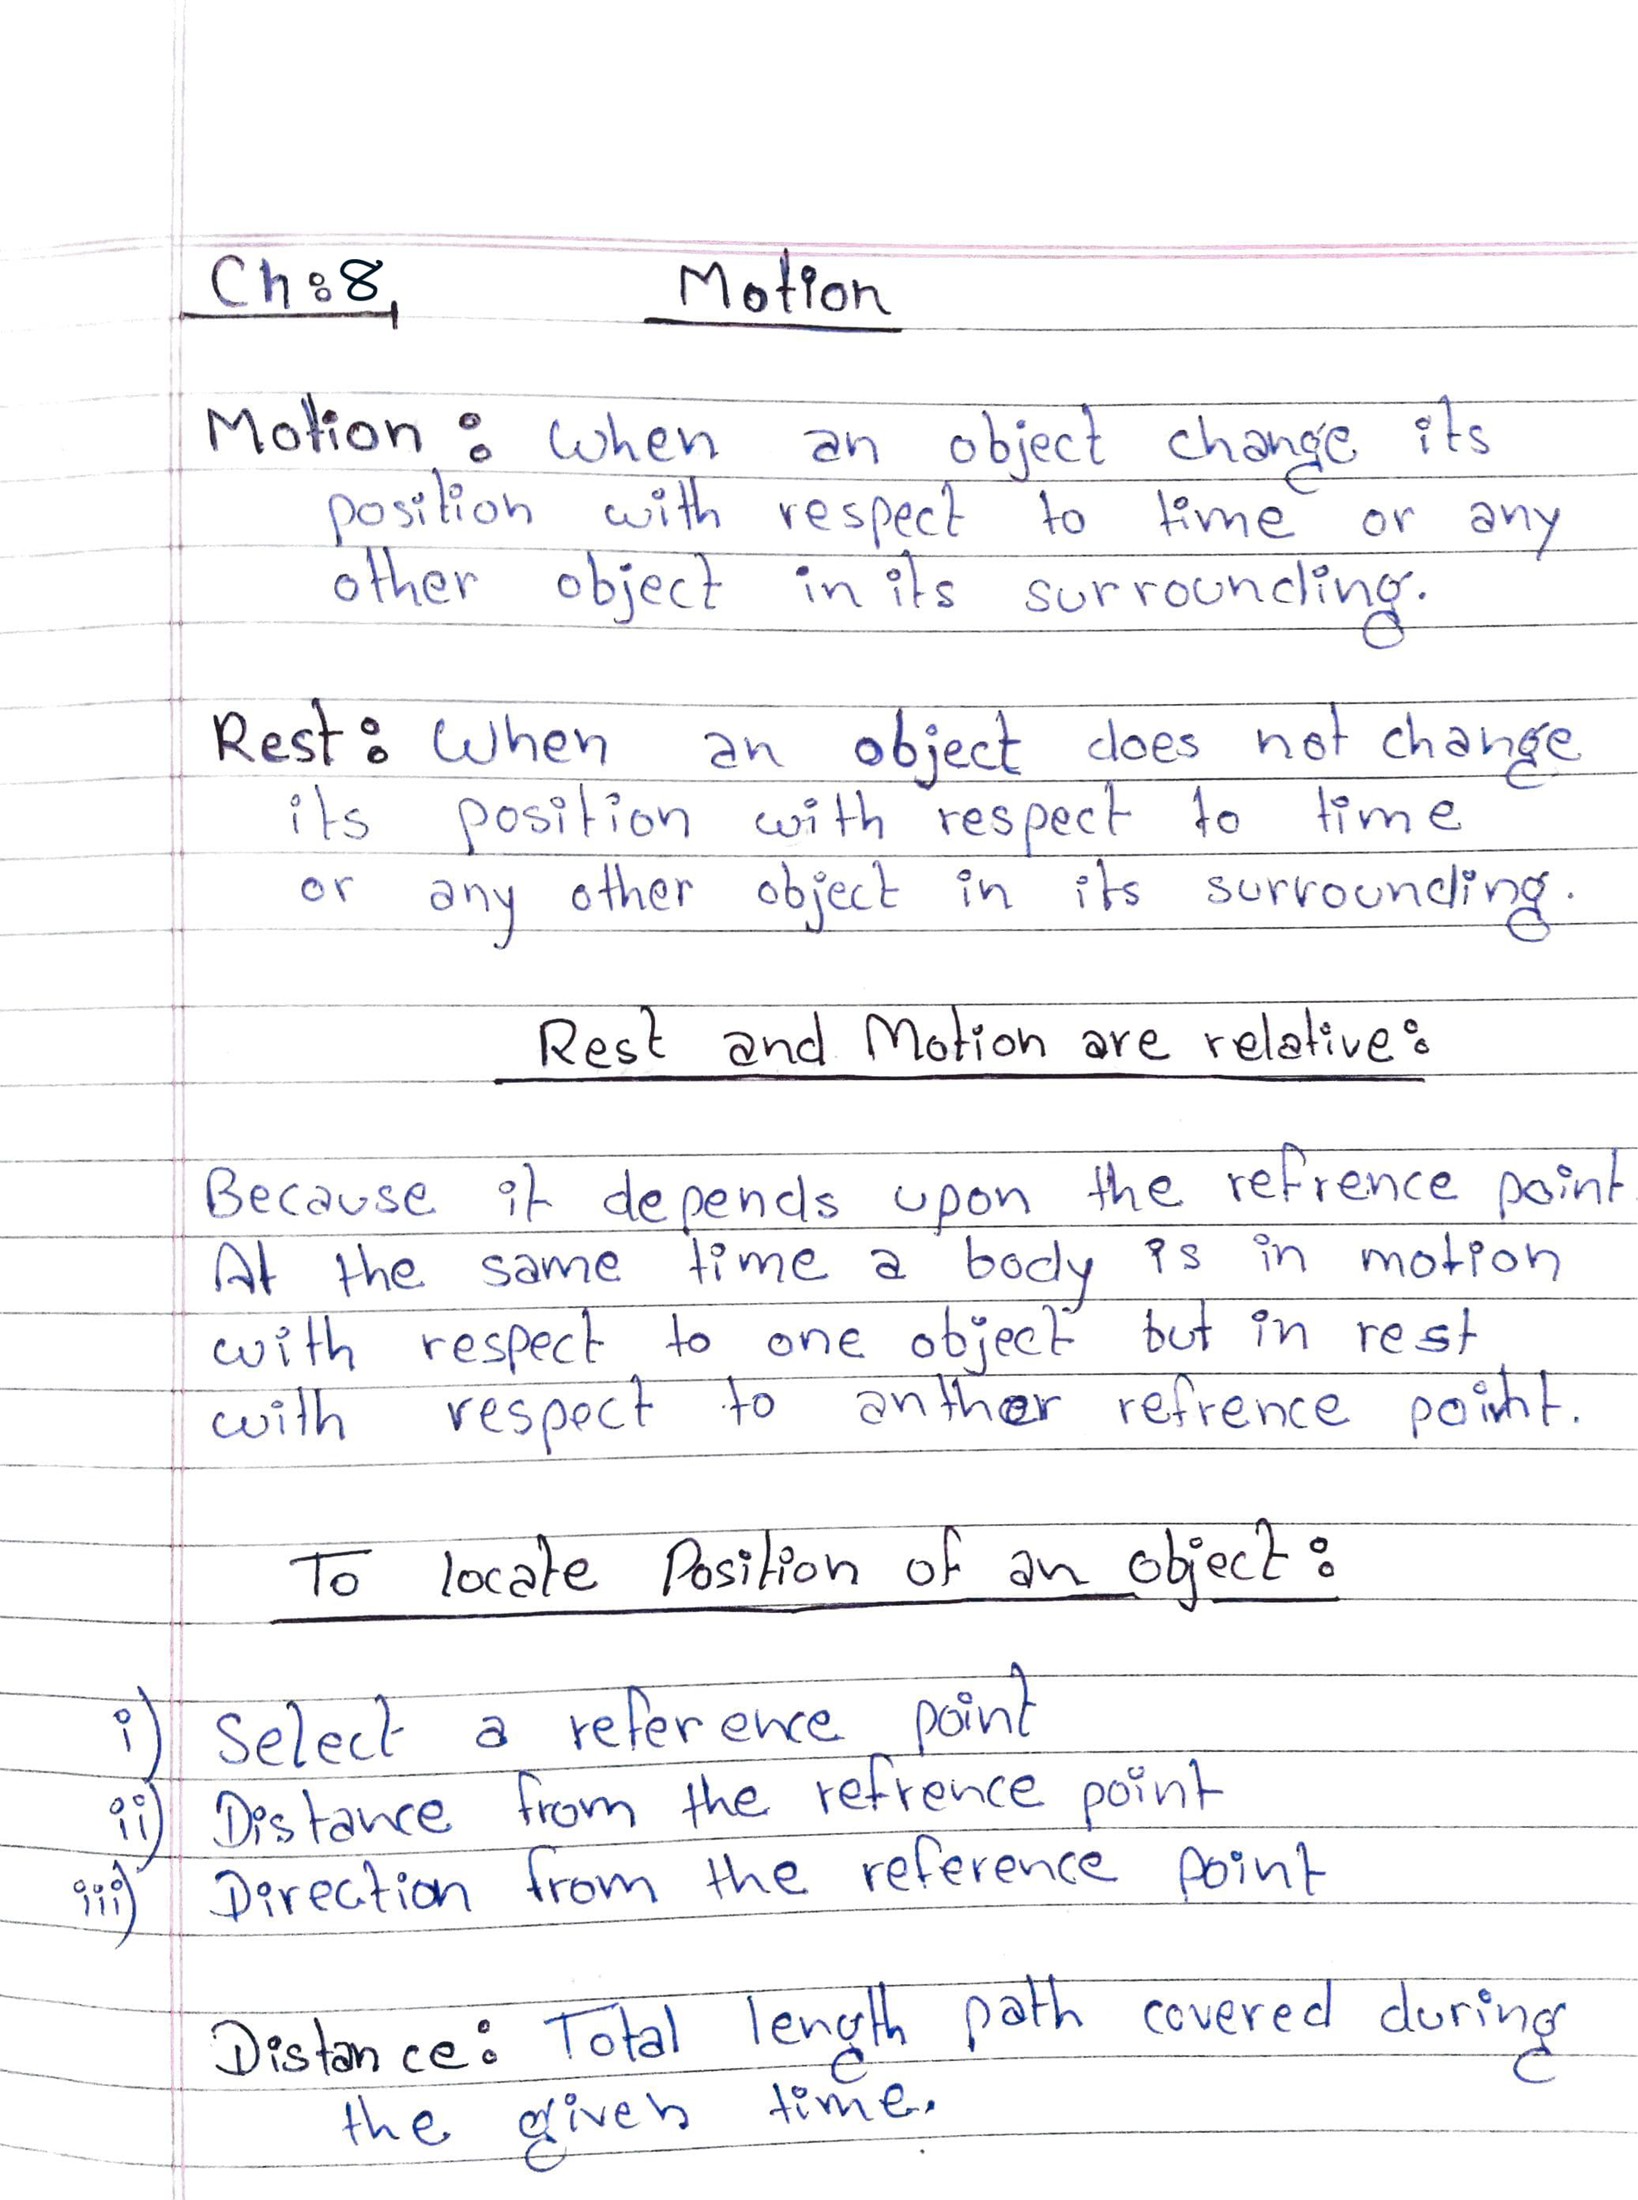 Ch:8 Motion
Motion : When an object change its
position with respect to time or any
other object in its surrounding.
Rest: When an object does not change
its position with respect to time
or any other object in its surrounding.
Rest and Motion are relative:
Because it depends upon the refrence point.
At the same time a body is in motion
with respect to one object but in rest
with respect to anther refrence point.
To locate Position of an object:
i) Select a reference point
ii) Distance from the refrence point
iii) Direction from the reference point
Distance: Total length path covered during
the given time.